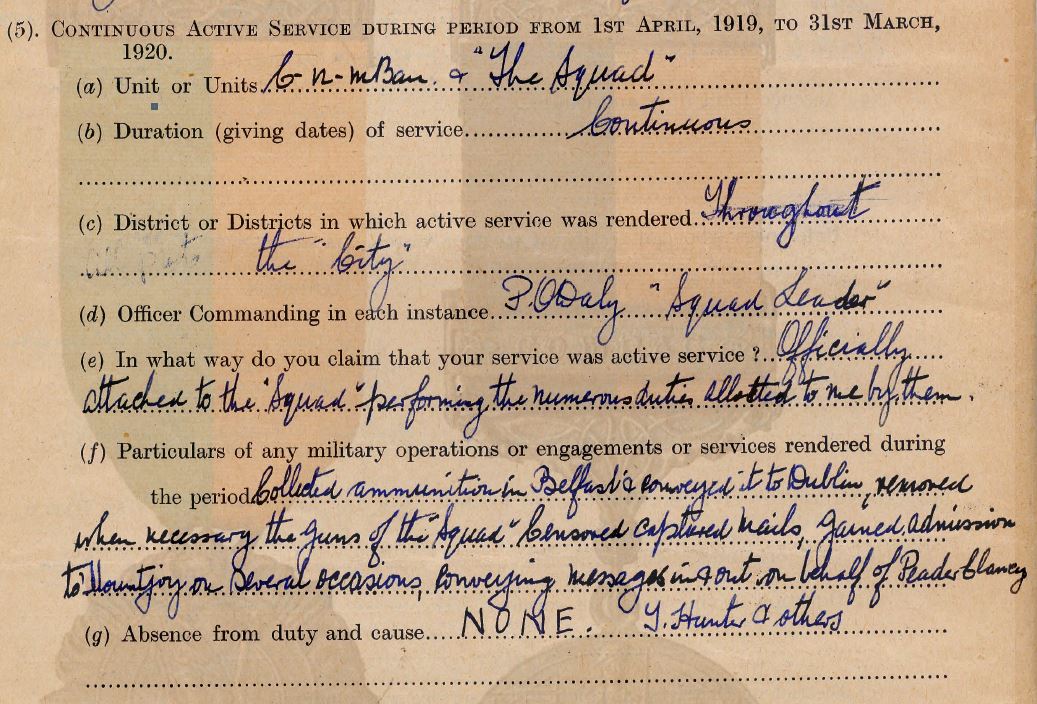 (5). CONTINUOUS ACTIVE SERVICE DURING PERIOD FROM 1ST APRIL, 1919, TO 31ST MARCH,
1920.
(a) Unit or Units C-n-mBan. & "The Squad"
(b) Duration (giving dates) of service Continuous
(c) District or Districts in which active service was rendered Throughout
all parts the "City"
(d) Officer Commanding in each instance P. O Daly "Squad Leader"
(e) In what way do you claim that your service was active service? Officially
attached to the "Squad" performing the numerous duties allotted to me by them.
(f) Particulars of any military operations or engagements or services rendered during
the period Collected ammunition in Belfast & conveyed it to Dublin, removed
when necessary the guns of the "Squad" Censored captured mails, gained admission
to Mountjoy on several occasions, conveying messages in & out on behalf of Peadar Clancy
(g) Absence from duty and cause NONE. T. Hunter & others